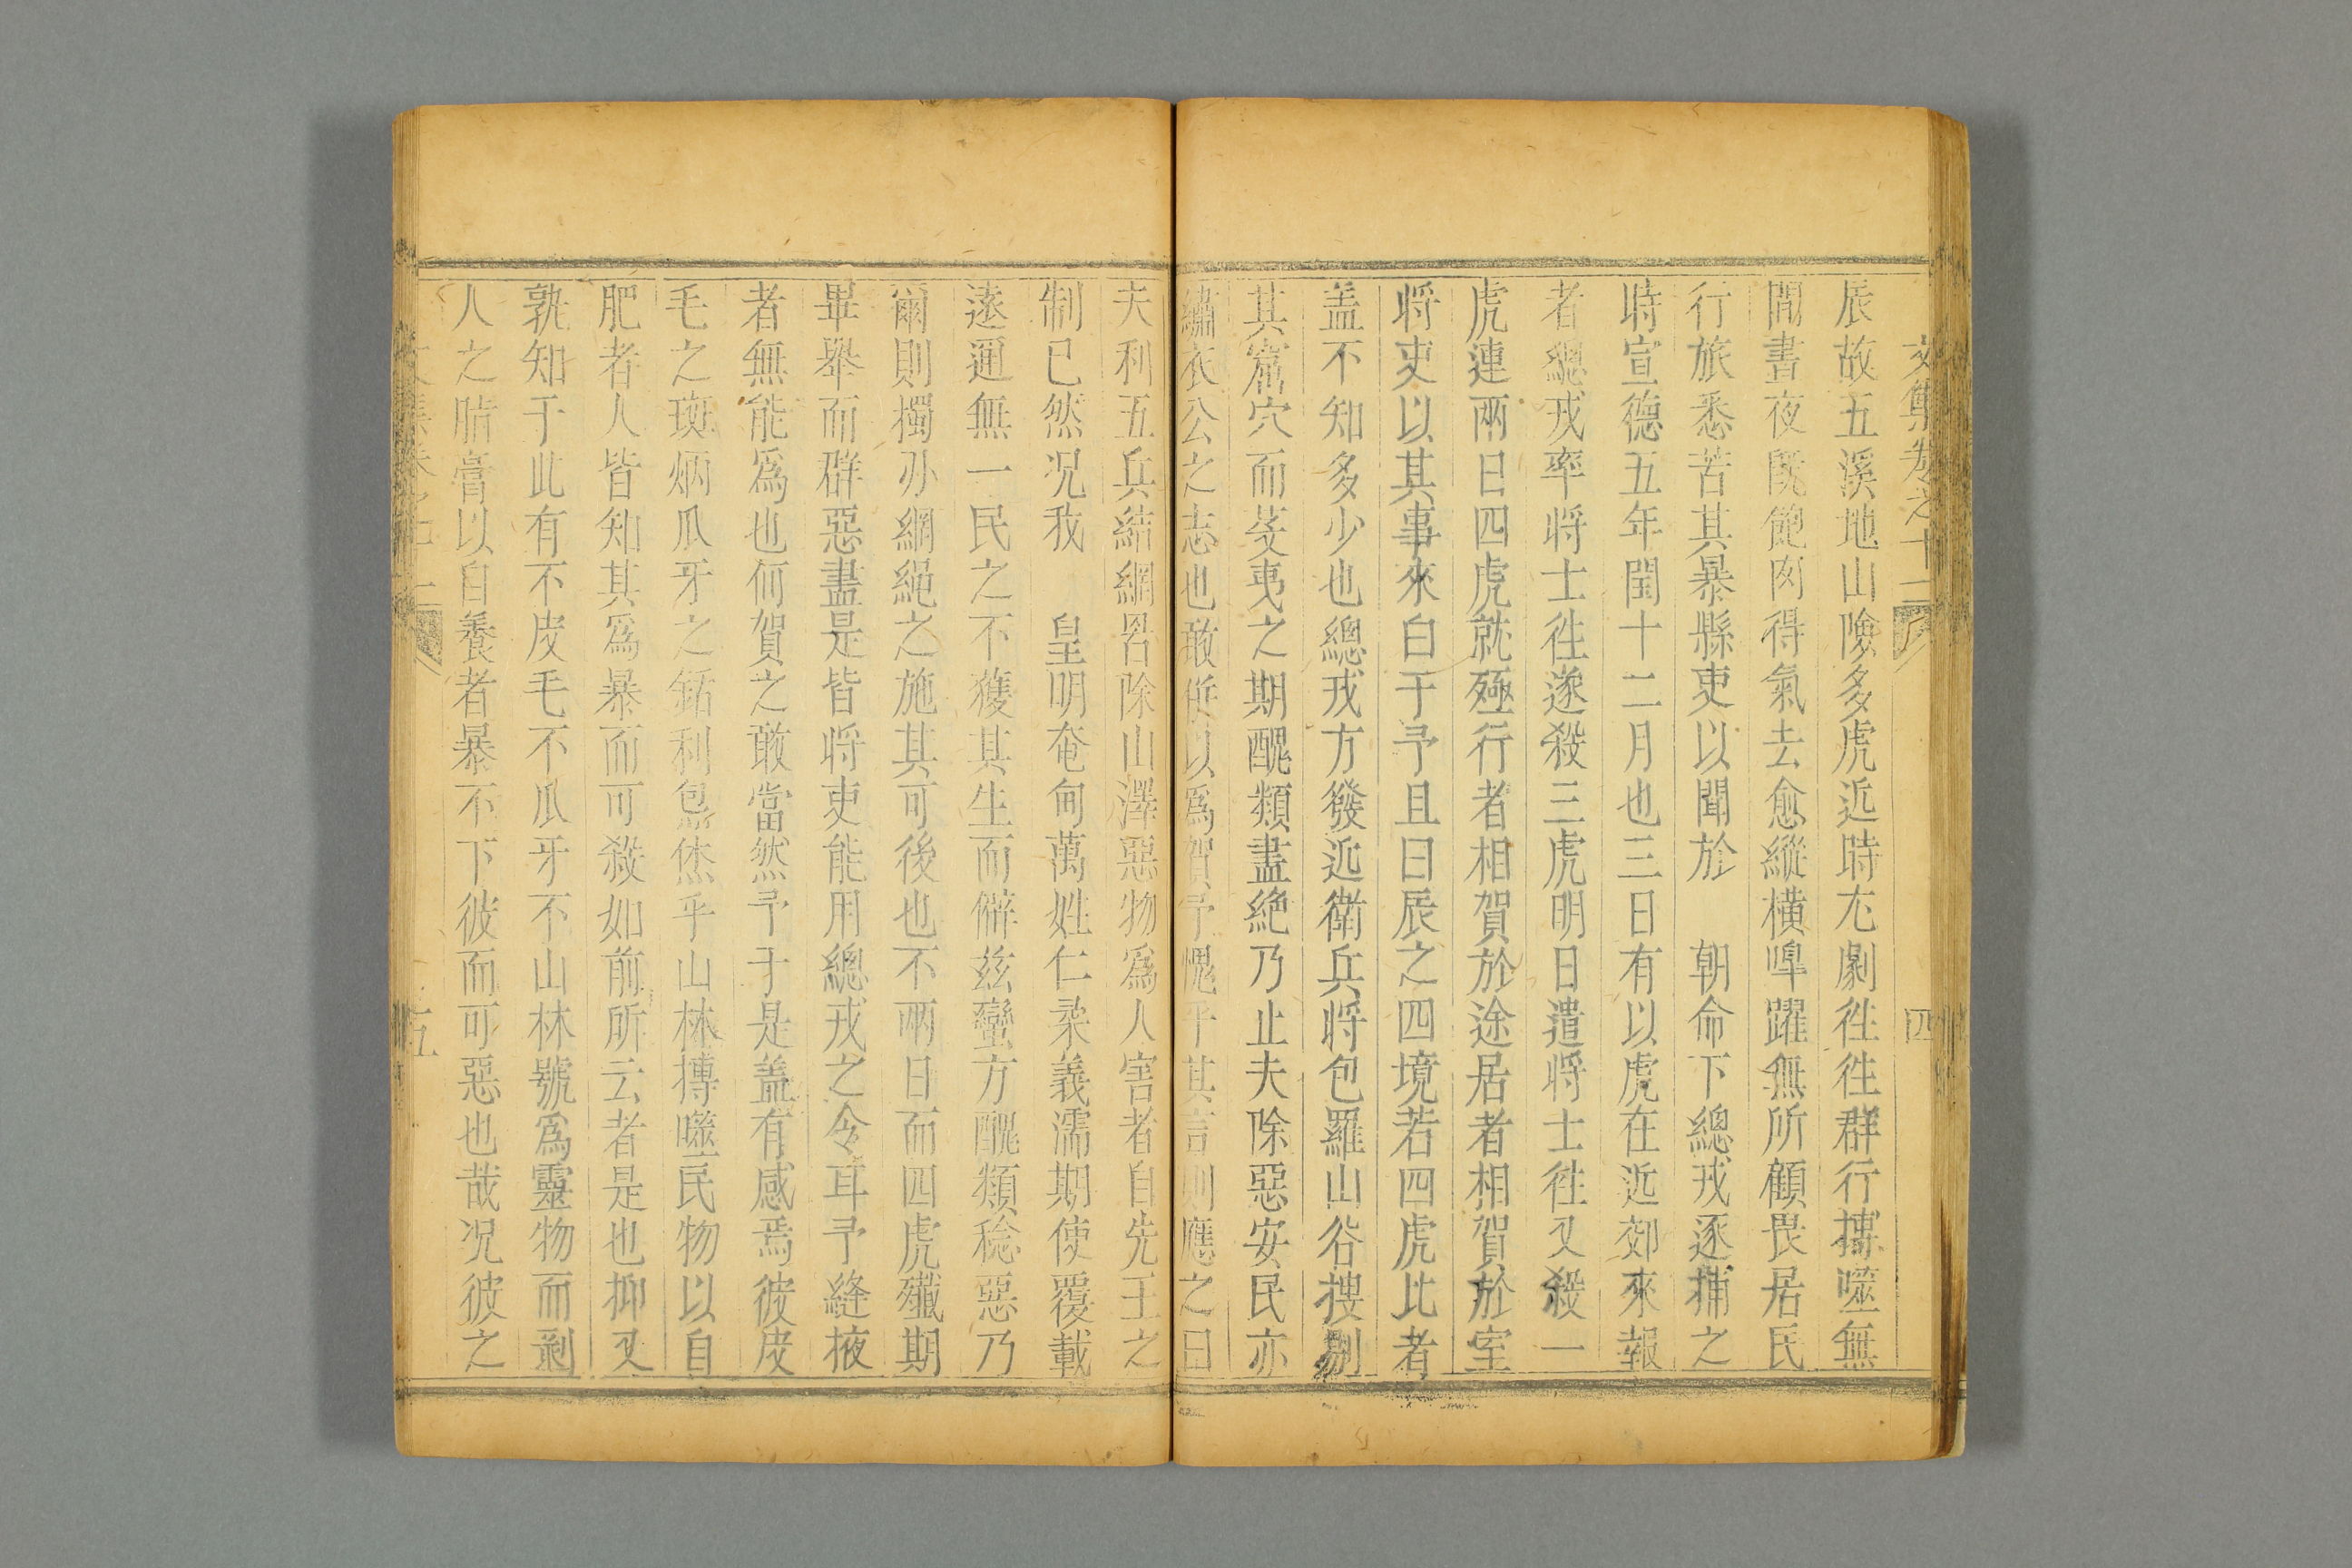 文集卷之十二 四
辰故五溪地山險多虎近時尤劇徃徃群行搏噬無
間晝夜旣飽肉得氣去愈縱橫嘷躍無所顧畏居民
行旅悉苦其暴縣吏以聞於 朝命下總戎逐捕之
時宣德五年閏十二月也三日有以虎在近郊來報
者總戎率將士徃遂殺三虎明日遣將士徃又殺一
虎連兩日四虎就殛行者相賀於途居者相賀於室
將吏以其事來白于予且曰辰之四境若四虎比者
盖不知多少也總戎方發近衛兵將包羅山谷搜剔
其窟穴而芟夷之期醜類盡絶乃止夫除惡安民亦
繡衣公之志也敢以爲賀予愧乎其言則應之曰
夫利五兵結網罟除山澤惡物爲人害者自先王之
制已然况我 皇明奄甸萬姓仁柔義濡期使覆載
逺邇無一民之不獲其生而僻兹蠻方醜類稔惡乃
爾則擉刅網絕之施其可後也不兩日而四虎殲期
畢舉而群惡盡是皆將吏能用總戎之令耳予縫掖
者無能爲也何賀之敢當然予于是盖有感焉彼皮
毛之斑炳爪牙之銛利炰烋乎山林搏噬民物以自
肥者人皆知其爲暴而可殺如前所云者是也抑又
孰知于此有不皮毛不爪牙不山林號爲靈物而剥
人之脂膏以自養者暴不下彼而可惡也哉况彼之
五